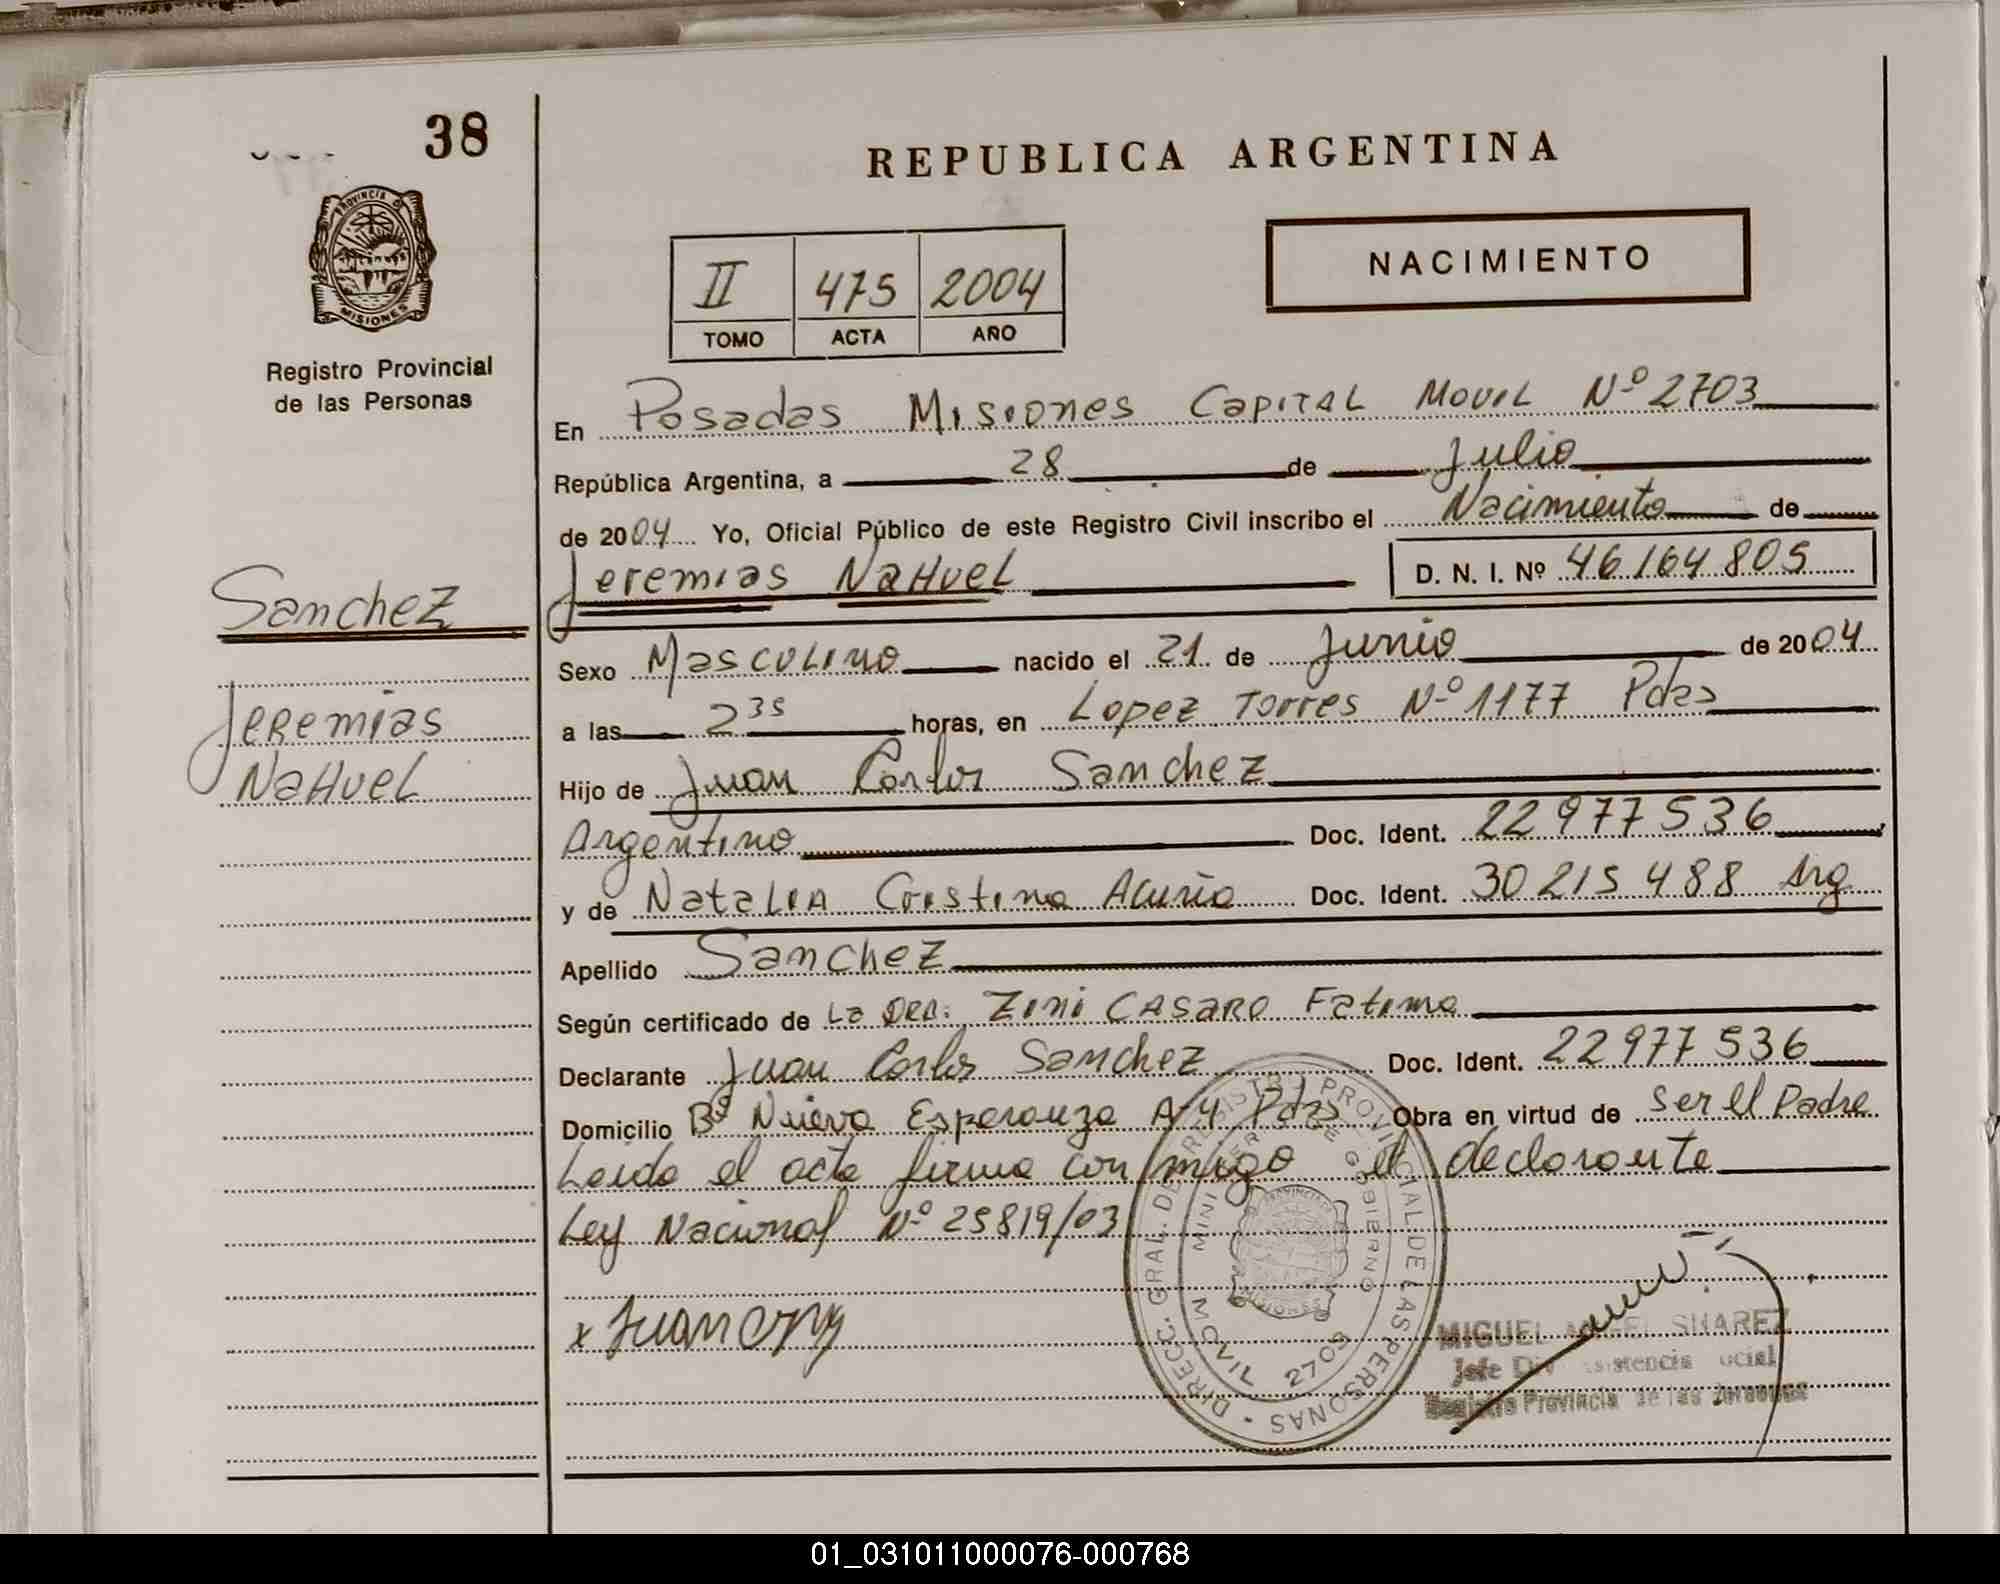 38
PROVINCIA DE
MISIONES
Registro Provincial
de las Personas
Sanchez
Jeremias
Nahuel
REPUBLICA ARGENTINA
II 475 2004
TOMO ACTA AÑO
NACIMIENTO
En Posadas Misiones Capital Movil Nº 2703
República Argentina, a 28 de Julio
de 2004 Yo, Oficial Público de este Registro Civil inscribo el Nacimiento de
Jeremias Nahuel D. N. I. Nº 46164805
Sexo Masculino nacido el 21 de Junio de 2004
a las 2 35 horas, en Lopez Torres Nº 1177 Pdas
Hijo de Juan Carlos Sanchez
Argentino Doc. Ident. 22977536
y de Natalia Cristina Acuña Doc. Ident. 30215488 Arg
Apellido Sanchez
Según certificado de La Dra: Zini Casaro Fatima
Declarante Juan Carlos Sanchez Doc. Ident. 22977536
Domicilio Bº Nueva Esperanza A-4 Pdas Obra en virtud de ser el Padre
Leida el acta firma conmigo el declarante
Ley Nacional Nº 25819/03
x Juan
DIRECC. GRAL. DE REGISTRO PROVINCIAL DE LAS PERSONAS
MINISTERIO DE GOBIERNO
MOVIL 2703
MIGUEL ANGEL SUAREZ
Jefe Div Asistencia Social
Registro Provincia de las Personas
01_031011000076-000768